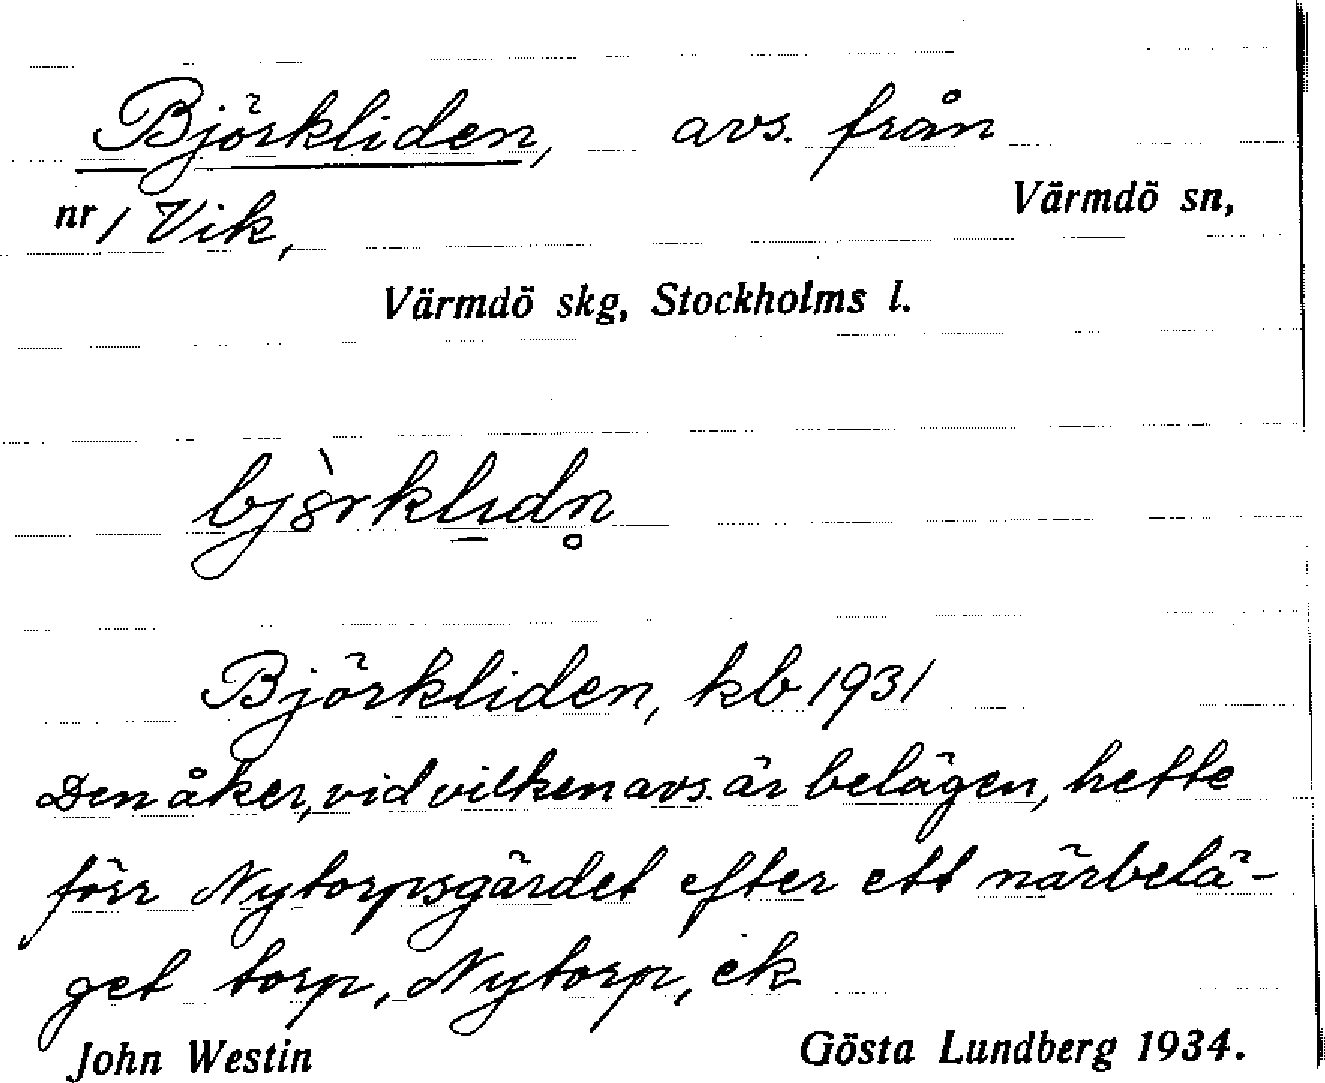 Björkliden, avs. från
Värmdö sn,
nr 1 Vik,
Värmdö skg, Stockholms l.
bjö̀rklıdn̥
Björkliden, kb 1931
Den åker, vid vilken avs. är belägen, hette
förr Nytorpsgärdet efter ett närbelä-
get torp, Nytorp, ek
John Westin Gösta Lundberg 1934.